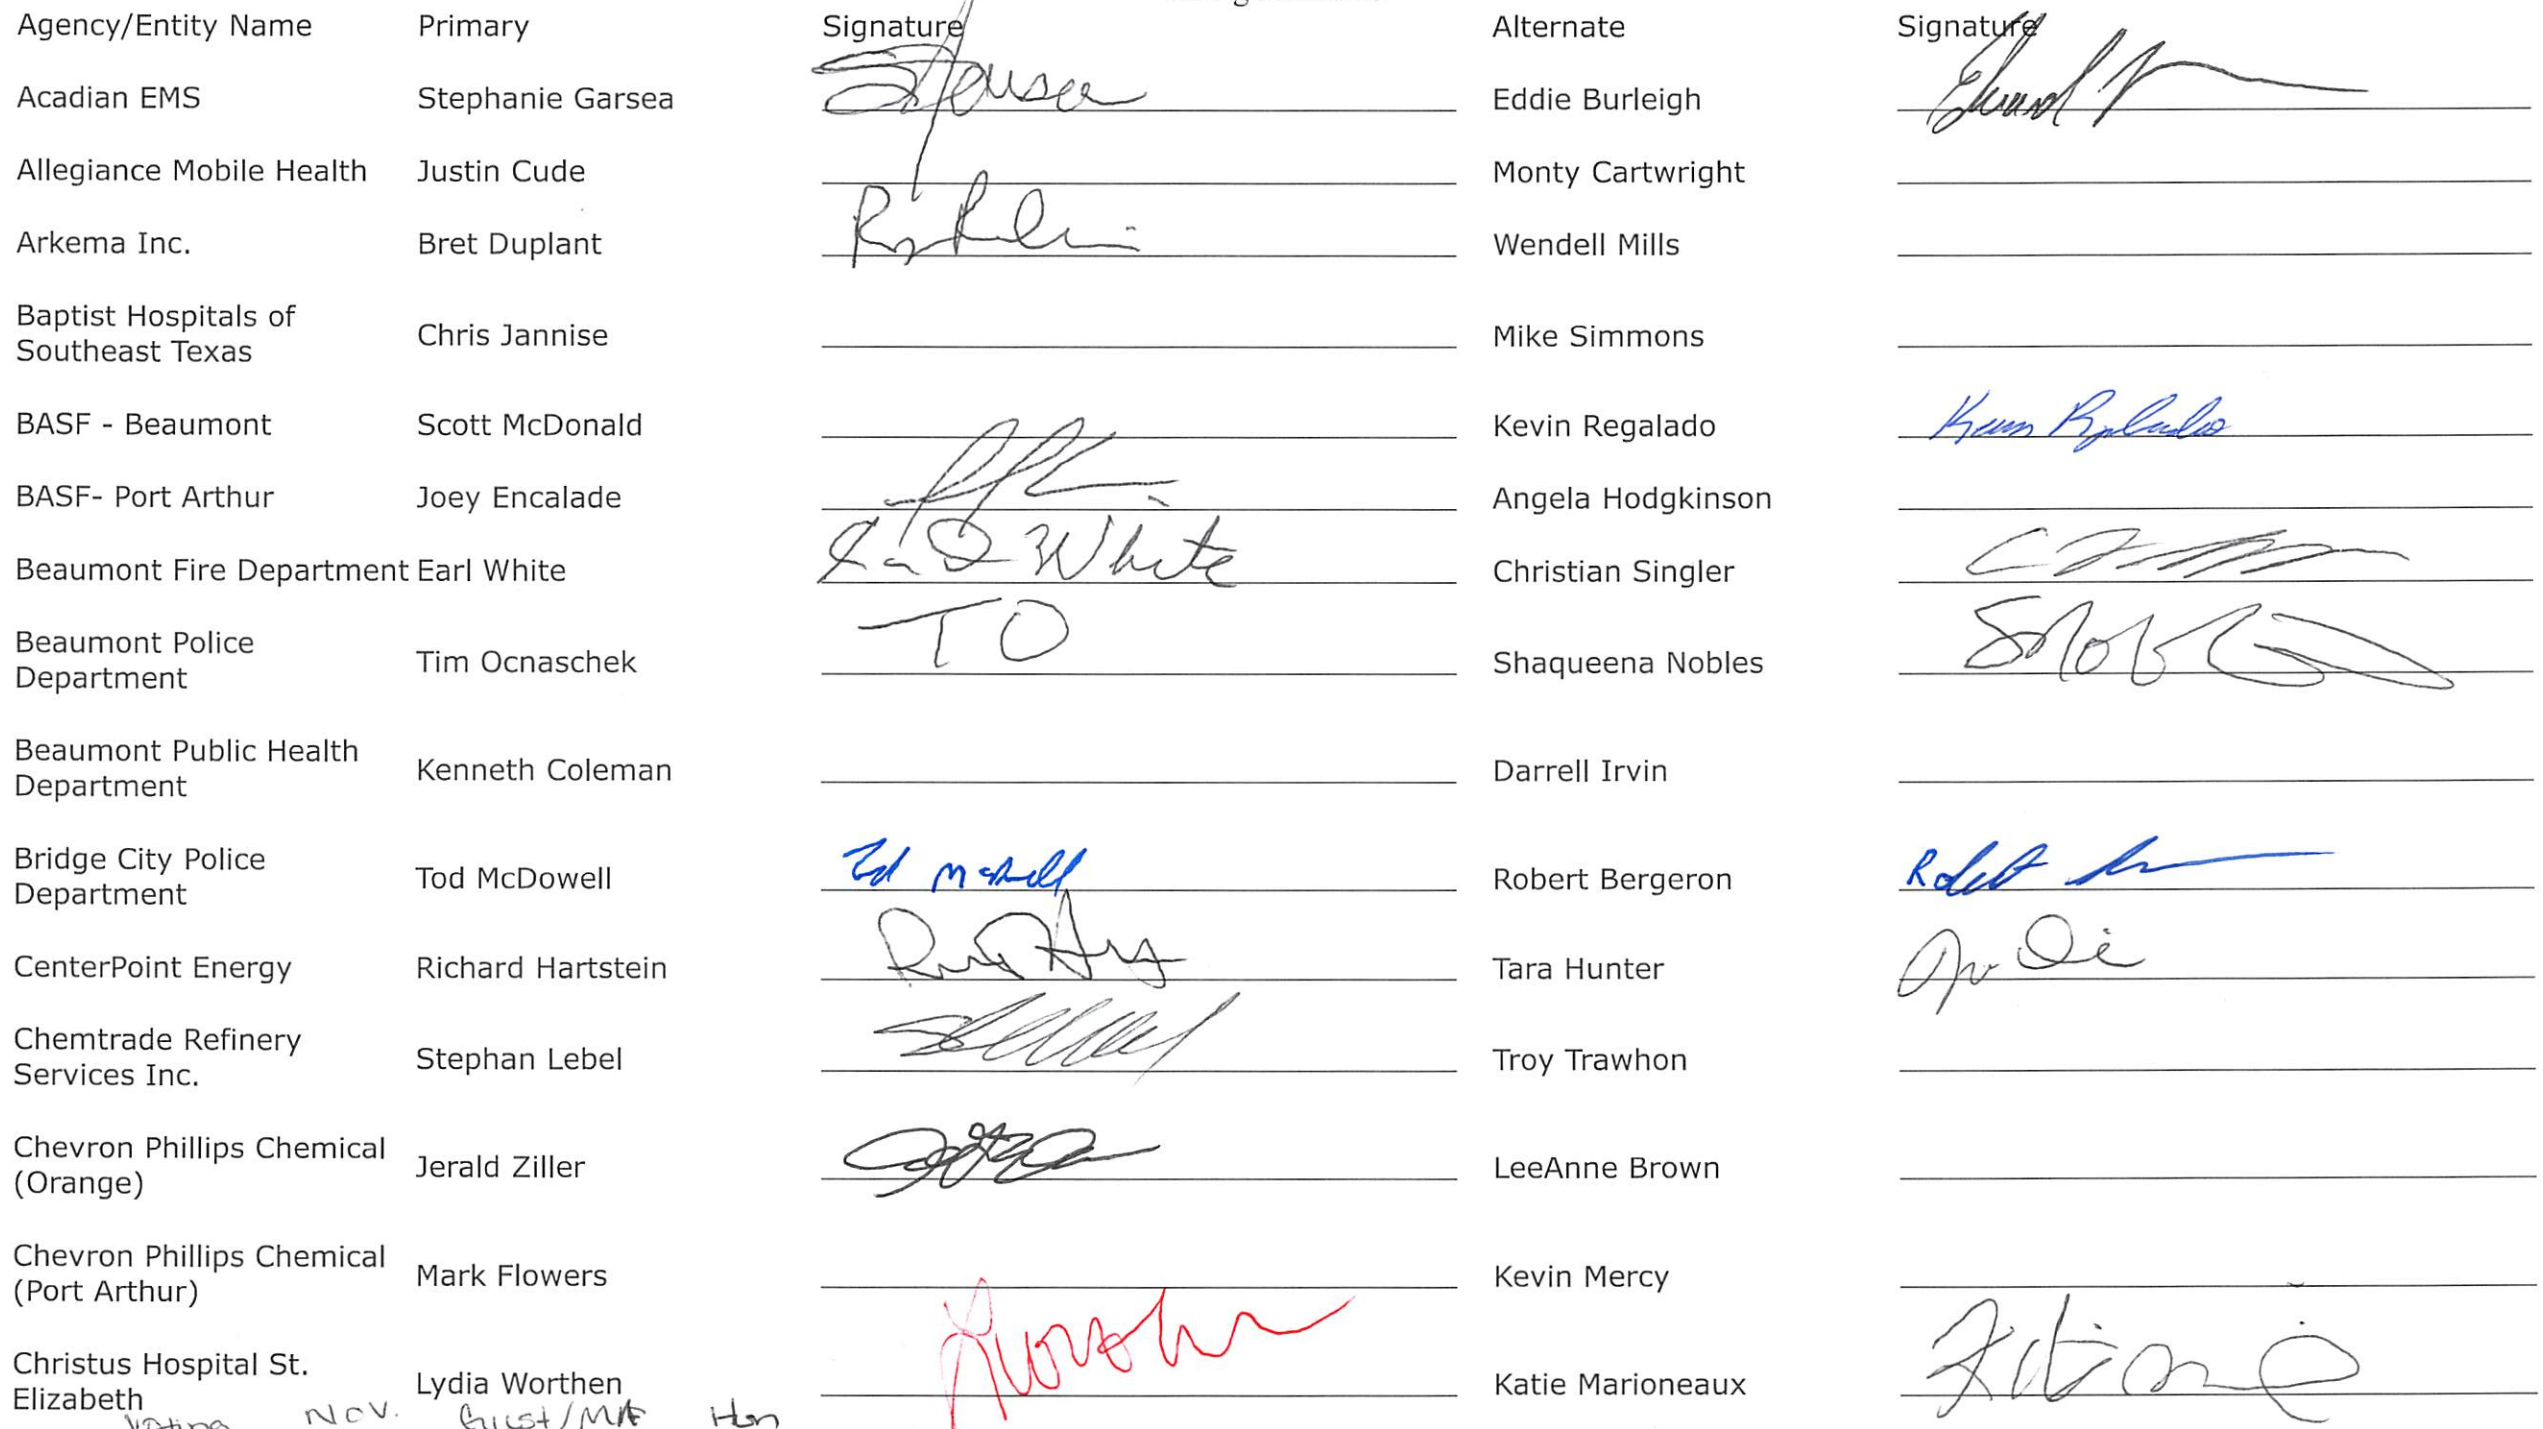 Agency/Entity Name Primary Signature Alternate Signature
Acadian EMS Stephanie Garsea Eddie Burleigh
Allegiance Mobile Health Justin Cude Monty Cartwright
Arkema Inc. Bret Duplant Wendell Mills
Baptist Hospitals of
Southeast Texas Chris Jannise Mike Simmons
BASF - Beaumont Scott McDonald Kevin Regalado Kevin Regalado
BASF- Port Arthur Joey Encalade Angela Hodgkinson
Beaumont Fire Department Earl White White Christian Singler
Beaumont Police
Department Tim Ocnaschek TO Shaqueena Nobles
Beaumont Public Health
Department Kenneth Coleman Darrell Irvin
Bridge City Police
Department Tod McDowell Tod McDowell Robert Bergeron Robert
CenterPoint Energy Richard Hartstein Tara Hunter
Chemtrade Refinery
Services Inc. Stephan Lebel Troy Trawhon
Chevron Phillips Chemical
(Orange) Jerald Ziller LeeAnne Brown
Chevron Phillips Chemical
(Port Arthur) Mark Flowers Kevin Mercy
Christus Hospital St.
Elizabeth Lydia Worthen Katie Marioneaux
Voting Nov. Guest/MA Hon